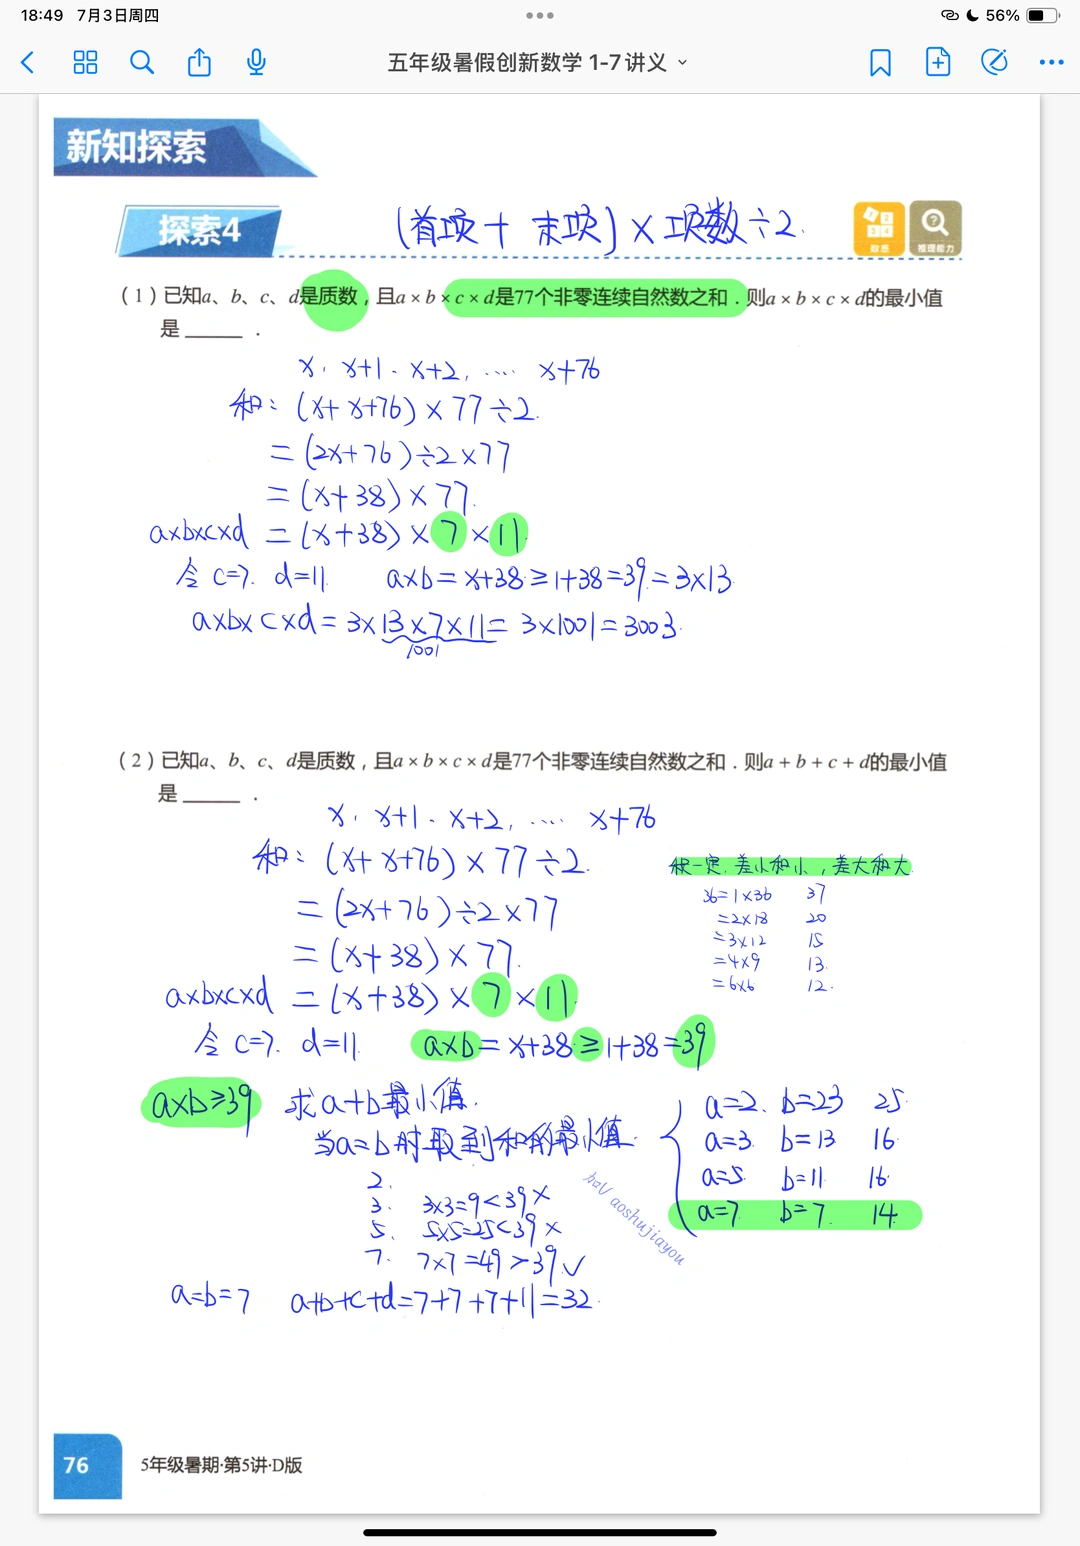 18:49 7月3日周四
56%
五年级暑假创新数学 1-7 讲义
新知探索
探索4
(首项 + 末项) × 项数 ÷ 2.
数感
推理能力
（1）已知a、b、c、d是质数，且a × b × c × d是77个非零连续自然数之和．则a × b × c × d的最小值
是 ______ ．
x, x+1、x+2, ···· x+76
和: (x+x+76) × 77 ÷ 2.
= (2x+76) ÷2 ×77
= (x+38) × 77.
a×b×c×d = (x+38) × 7 × 11.
令 c=7. d=11. a×b = x+38 ≥ 1+38 = 39 = 3×13.
a×b×c×d = 3×13×7×11 = 3×1001 = 3003.
1001
（2）已知a、b、c、d是质数，且a × b × c × d是77个非零连续自然数之和．则a + b + c + d的最小值
是 ______ ．
x, x+1、x+2, ···· x+76
和: (x+x+76) × 77 ÷ 2.
积一定, 差小和小, 差大和大
36=1×36 37
=2×18 20
= (2x+76) ÷2 ×77
=3×12 15
=4×9 13.
= (x+38) × 77.
=6×6 12.
a×b×c×d = (x+38) × 7 × 11.
令 c=7. d=11. a×b = x+38 ≥ 1+38 = 39
a×b≥39 求a+b最小值.
a=2. b=23 25.
当a=b时取到和的最小值.
a=3. b=13 16.
2.
a=5. b=11. 16.
3. 3×3=9<39 ×
a=7. b=7. 14.
5. 5×5=25<39 ×
7. 7×7=49>39 √
aoshujiayou
a=b=7 a+b+c+d=7+7+7+11=32.
76
5年级暑期·第5讲·D版